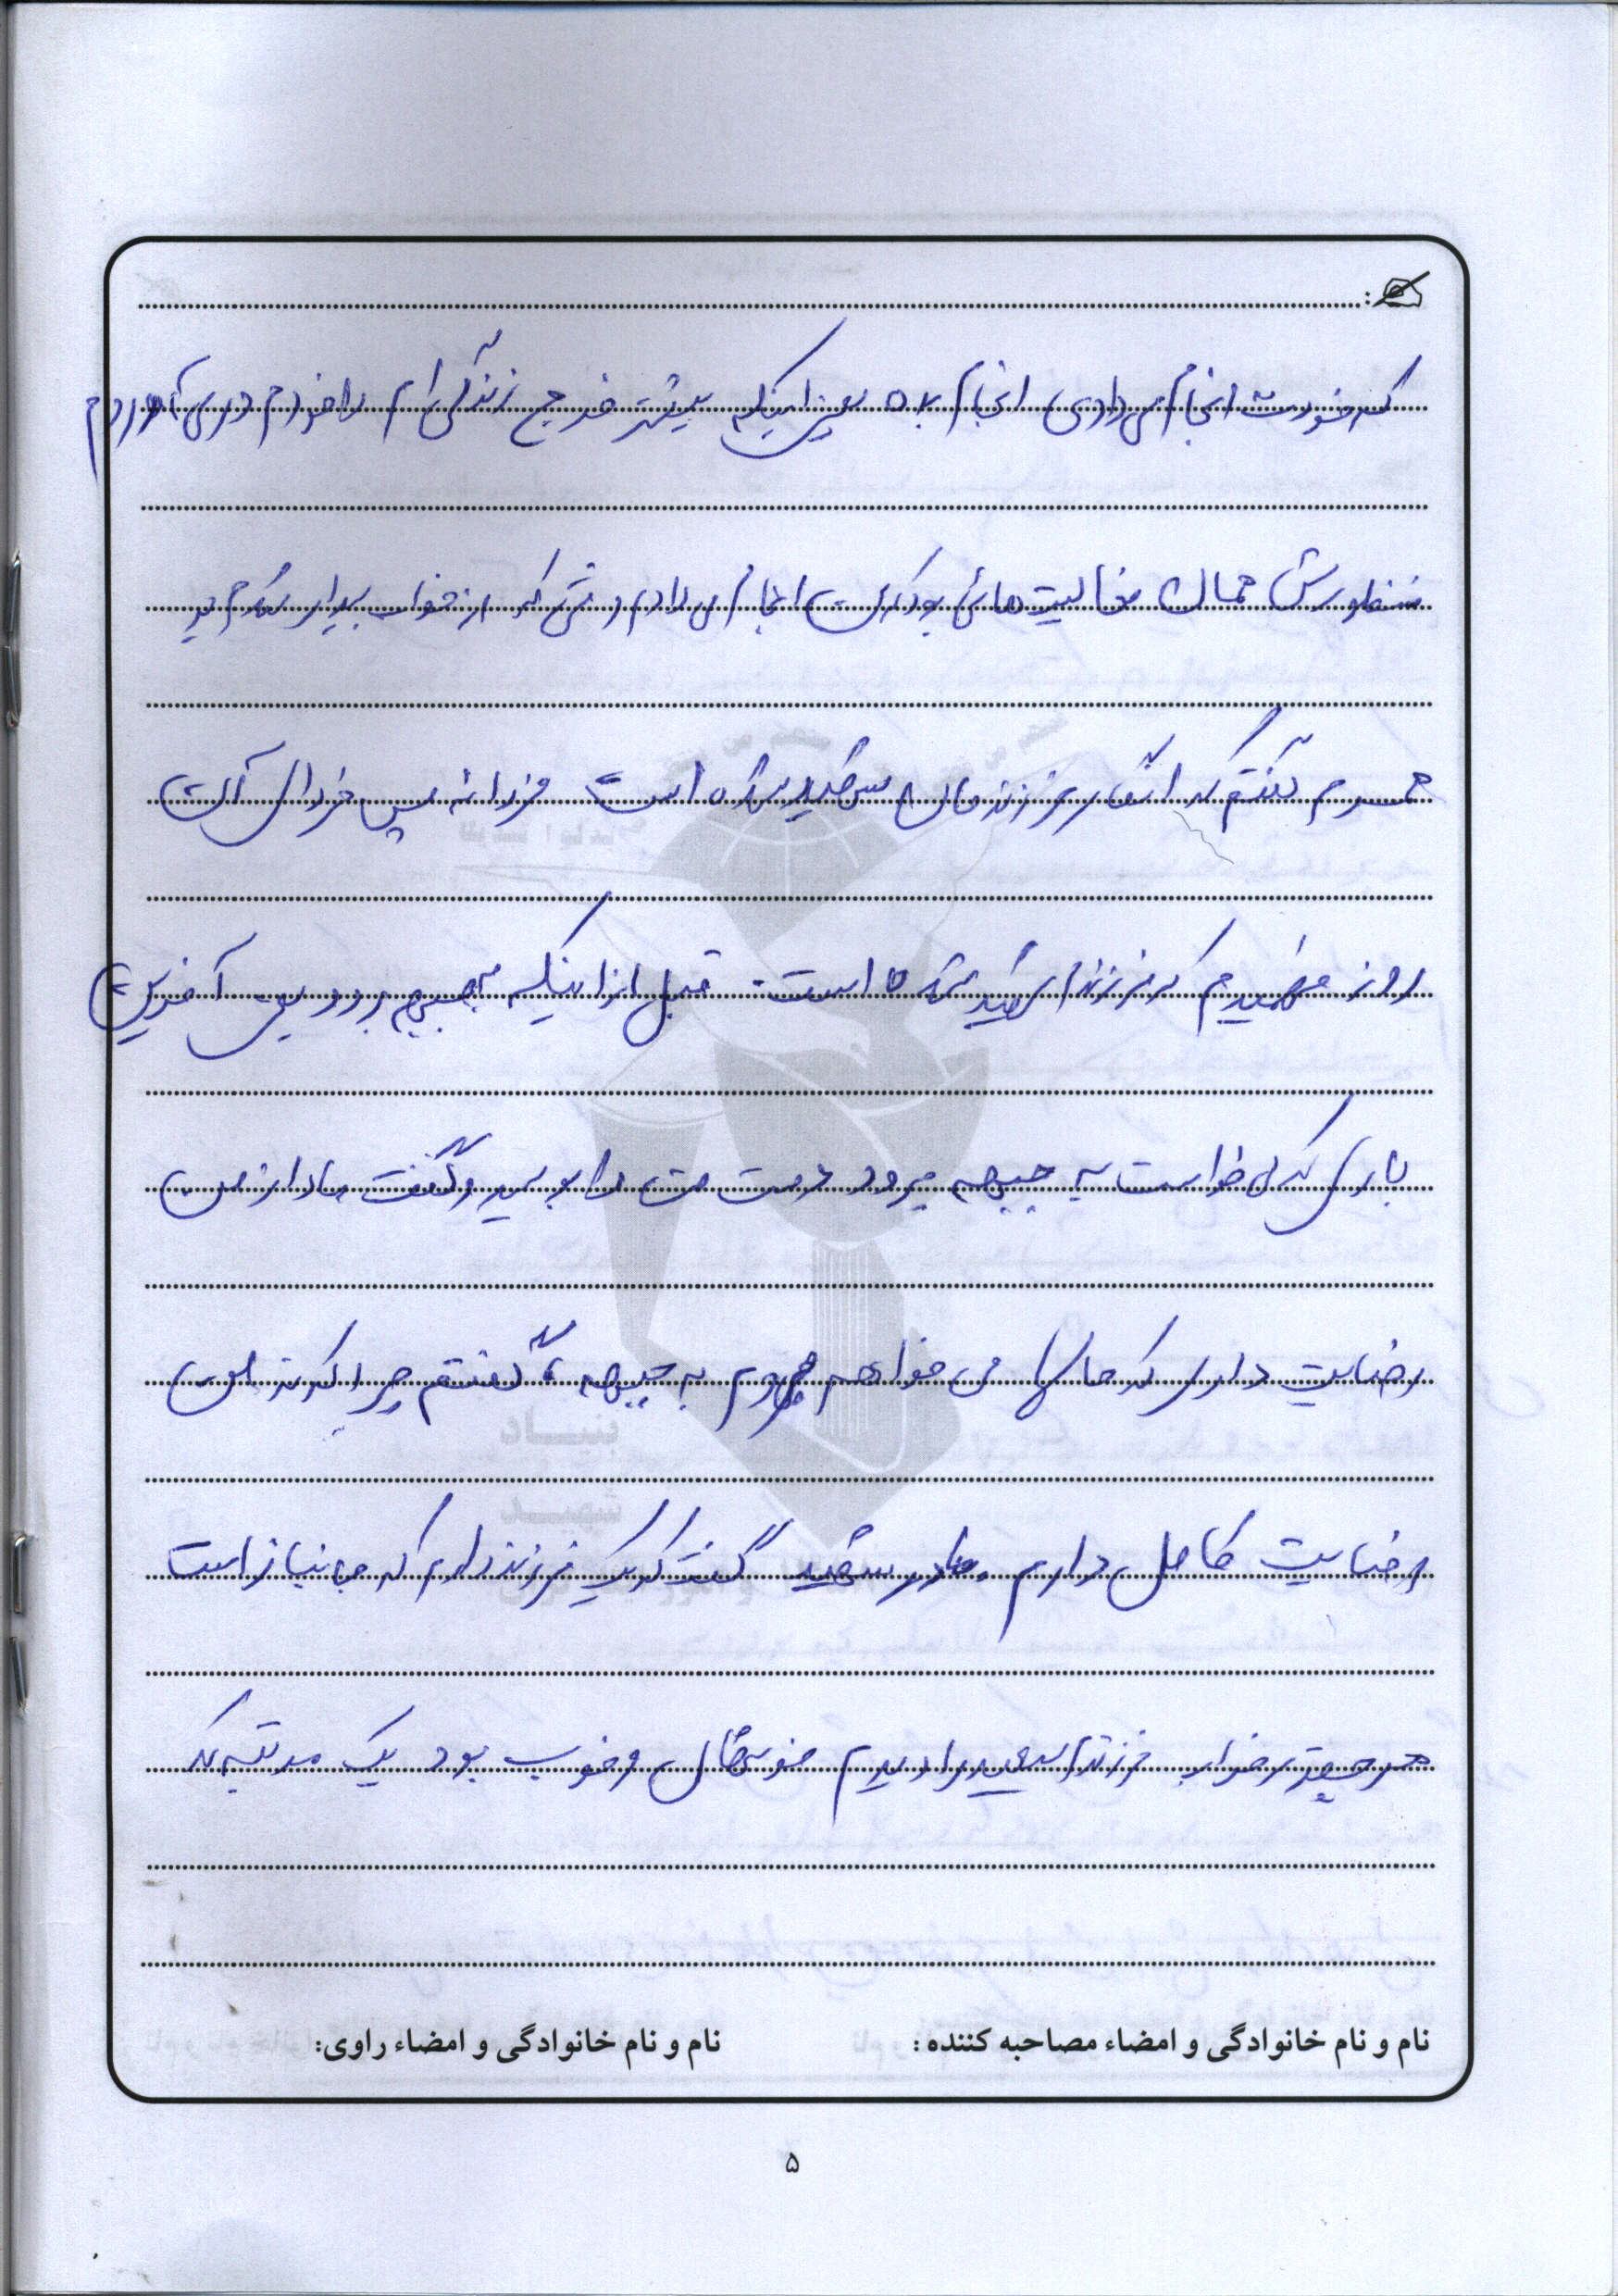 که خودت انجام می دادی انجام بده یعنی اینکه بیشتر خرج زندگی ام را خودم در می آوردم
منظورش همان فعالیت هائی بود که من انجام می دادم وقتی که از خواب بیدار شدم به
همسرم گفتم که انگار فرزندمان شهید شده است فردا نه پس فردای آن
روز فهمیدم که فرزندم شهید شده است. قبل از اینکه به جبهه برود یعنی آخرین
باری که می خواست به جبهه برود دست من را بوسید و گفت مادر از من
رضایت داری که حالا می خواهم بروم به جبهه، گفتم چرا که نه من
رضایت کامل دارم. مادر شهید گفت که یک فرزند دارم که جانباز است
هر چه در خواب فرزندم سعید را دیدم خوشحال و خوب بود یک مرتبه که
نام و نام خانوادگی و امضاء مصاحبه کننده :
نام و نام خانوادگی و امضاء راوی:
۵